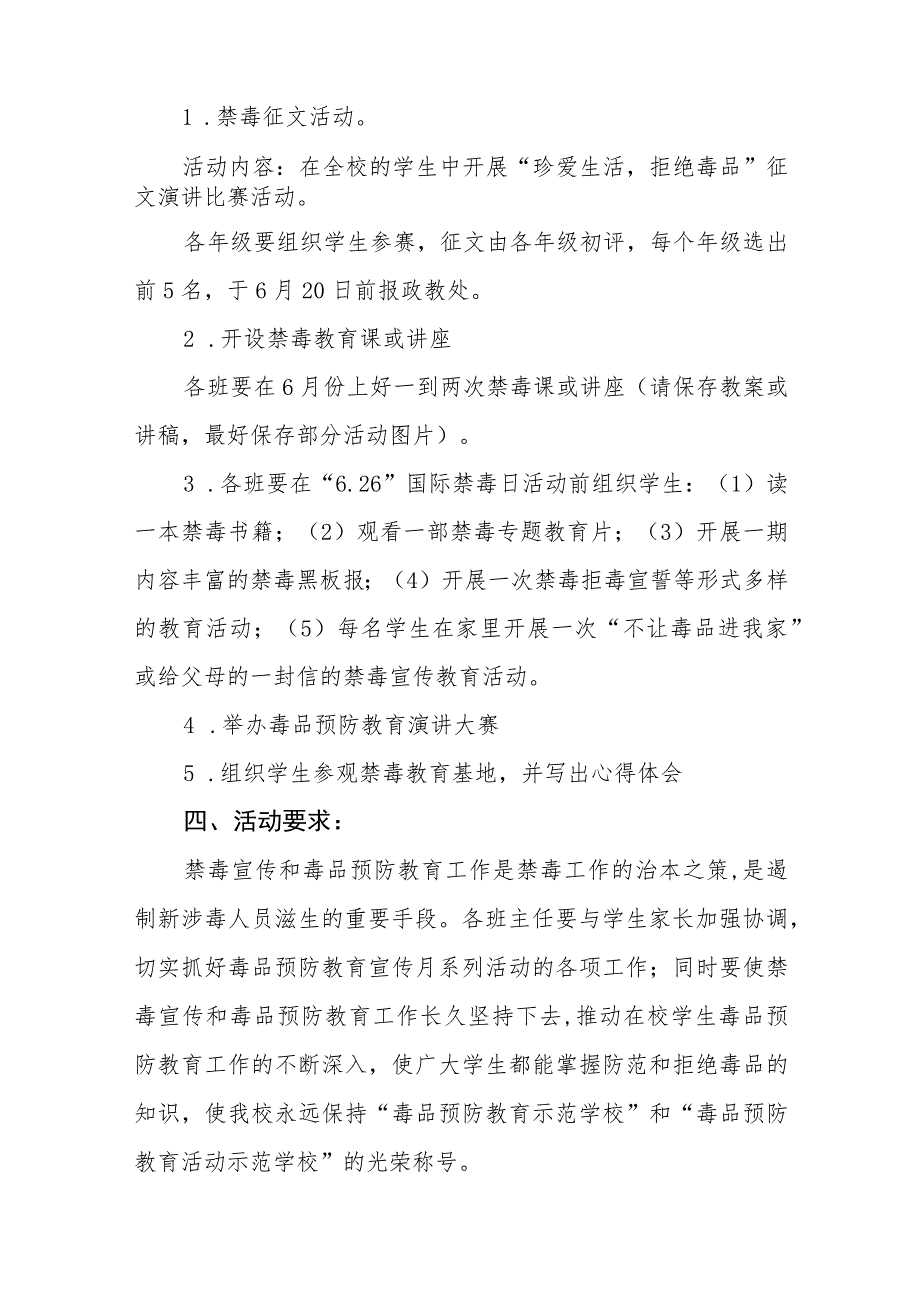 1 .禁毒征文活动。
活动内容：在全校的学生中开展“珍爱生活，拒绝毒品”征
文演讲比赛活动。
各年级要组织学生参赛，征文由各年级初评，每个年级选出
前 5 名，于 6 月 20 日前报政教处。
2 .开设禁毒教育课或讲座
各班要在 6 月份上好一到两次禁毒课或讲座（请保存教案或
讲稿，最好保存部分活动图片）。
3 .各班要在“6.26”国际禁毒日活动前组织学生：（1）读
一本禁毒书籍；（2）观看一部禁毒专题教育片；（3）开展一期
内容丰富的禁毒黑板报；（4）开展一次禁毒拒毒宣誓等形式多样
的教育活动；（5）每名学生在家里开展一次“不让毒品进我家”
或给父母的一封信的禁毒宣传教育活动。
4 .举办毒品预防教育演讲大赛
5 .组织学生参观禁毒教育基地，并写出心得体会
四、活动要求：
禁毒宣传和毒品预防教育工作是禁毒工作的治本之策,是遏
制新涉毒人员滋生的重要手段。各班主任要与学生家长加强协调，
切实抓好毒品预防教育宣传月系列活动的各项工作；同时要使禁
毒宣传和毒品预防教育工作长久坚持下去,推动在校学生毒品预
防教育工作的不断深入，使广大学生都能掌握防范和拒绝毒品的
知识，使我校永远保持“毒品预防教育示范学校”和“毒品预防
教育活动示范学校”的光荣称号。